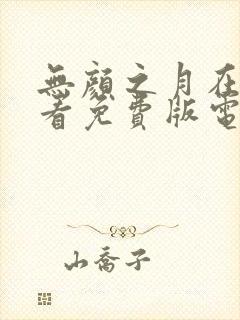 無顏之月在
看免費版電
山喬子